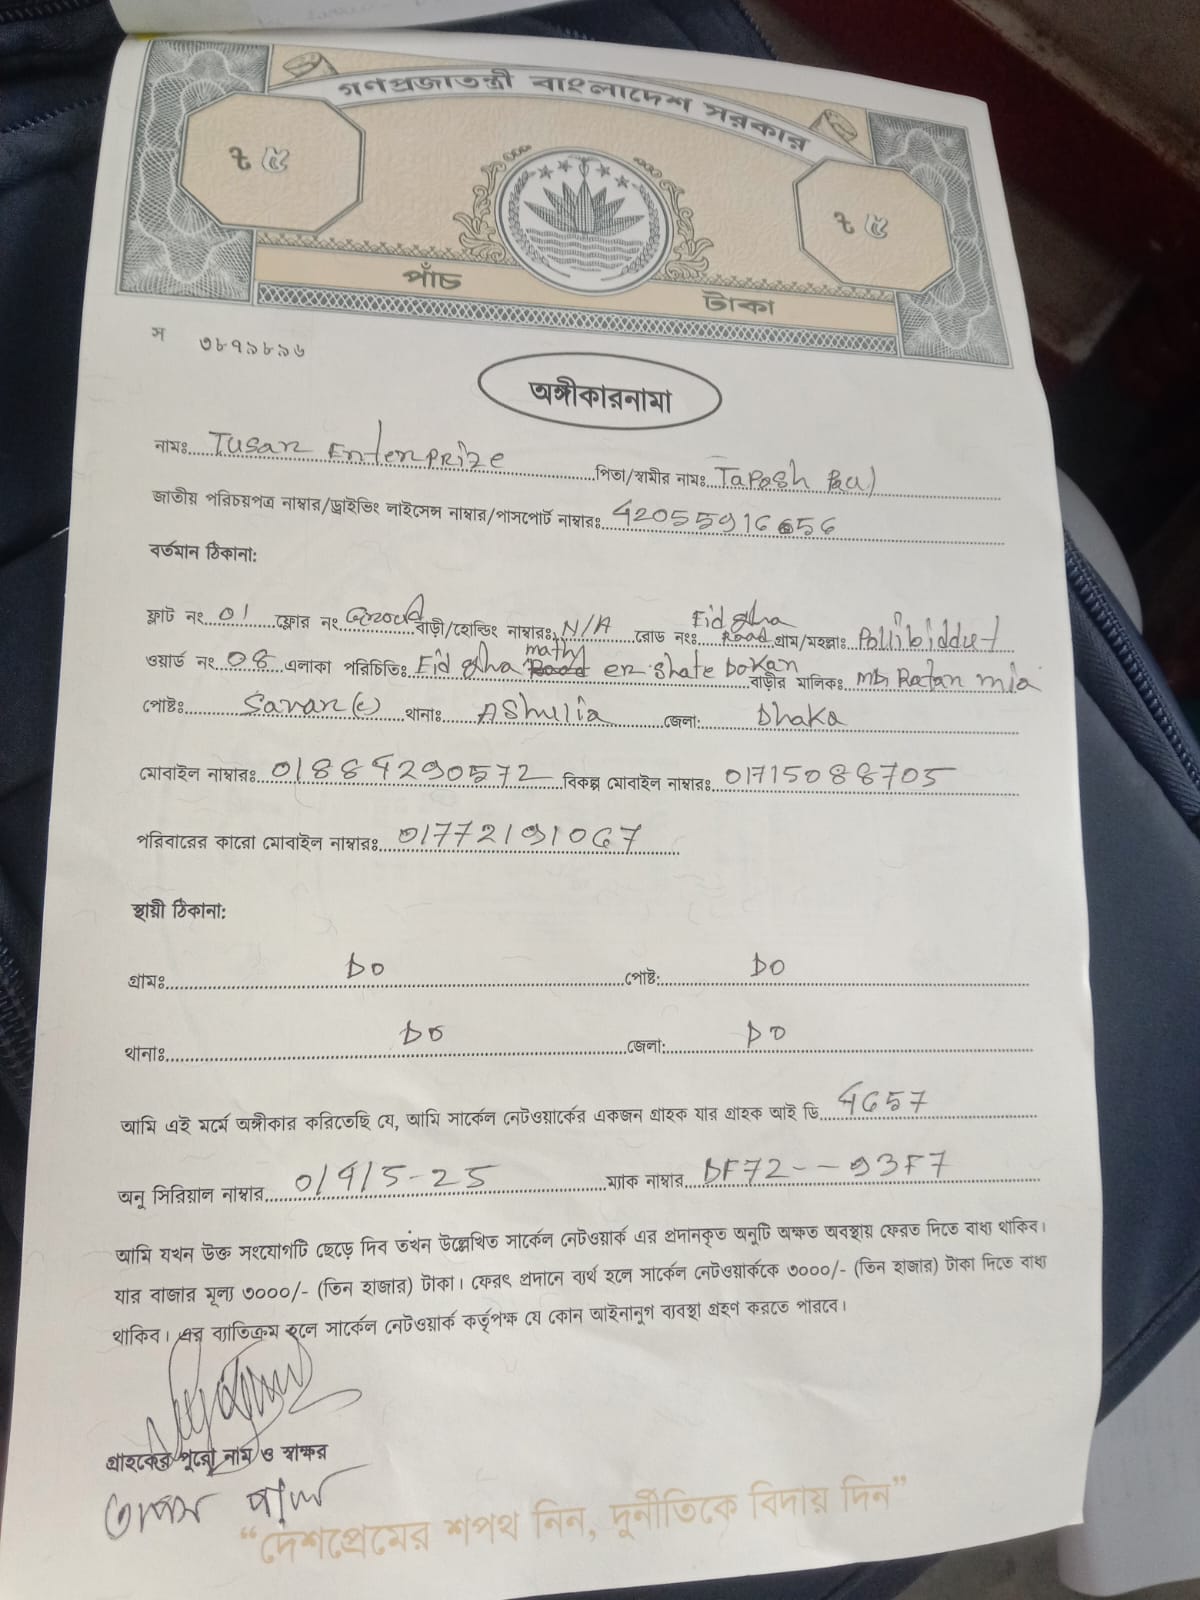 গণপ্রজাতন্ত্রী বাংলাদেশ সরকার
৳ ৫
৳ ৫
পাঁচ টাকা
স ৩৮৭৯৮৯৬
অঙ্গীকারনামা
নামঃ Tusan Enterprize পিতা/স্বামীর নামঃ Tapash Paul
জাতীয় পরিচয়পত্র নাম্বার/ড্রাইভিং লাইসেন্স নাম্বার/পাসপোর্ট নাম্বারঃ
বর্তমান ঠিকানা:
Eid gha
ফ্লাট নং 01 ফ্লোর নং বাড়ী/হোল্ডিং নাম্বারঃ N/A রোড নংঃ Road গ্রাম/মহল্লাঃ Pollibiddut
math
ওয়ার্ড নং 08 এলাকা পরিচিতিঃ Eid gha er shate Dokan বাড়ীর মালিকঃ MD, Ratan mia
পোষ্টঃ Savar(c) থানাঃ Ashulia জেলা: Dhaka
মোবাইল নাম্বারঃ 01884290572 বিকল্প মোবাইল নাম্বারঃ 01715088705
পরিবারের কারো মোবাইল নাম্বারঃ 01772191067
স্থায়ী ঠিকানা:
গ্রামঃ DO পোষ্ট: DO
থানাঃ DO জেলা: DO
আমি এই মর্মে অঙ্গীকার করিতেছি যে, আমি সার্কেল নেটওয়ার্কের একজন গ্রাহক যার গ্রাহক আই ডি 4657
অনু সিরিয়াল নাম্বার 01415-25 ম্যাক নাম্বার DF72--93F7
আমি যখন উক্ত সংযোগটি ছেড়ে দিব তখন উল্লেখিত সার্কেল নেটওয়ার্ক এর প্রদানকৃত অনুটি অক্ষত অবস্থায় ফেরত দিতে বাধ্য থাকিব।
যার বাজার মূল্য ৩০০০/- (তিন হাজার) টাকা। ফেরৎ প্রদানে ব্যর্থ হলে সার্কেল নেটওয়ার্ককে ৩০০০/- (তিন হাজার) টাকা দিতে বাধ্য
থাকিব। এর ব্যাতিক্রম হলে সার্কেল নেটওয়ার্ক কর্তৃপক্ষ যে কোন আইনানুগ ব্যবস্থা গ্রহণ করতে পারবে।
গ্রাহকের পুরো নাম ও স্বাক্ষর
তাপস পাল
“দেশপ্রেমের শপথ নিন, দুর্নীতিকে বিদায় দিন”